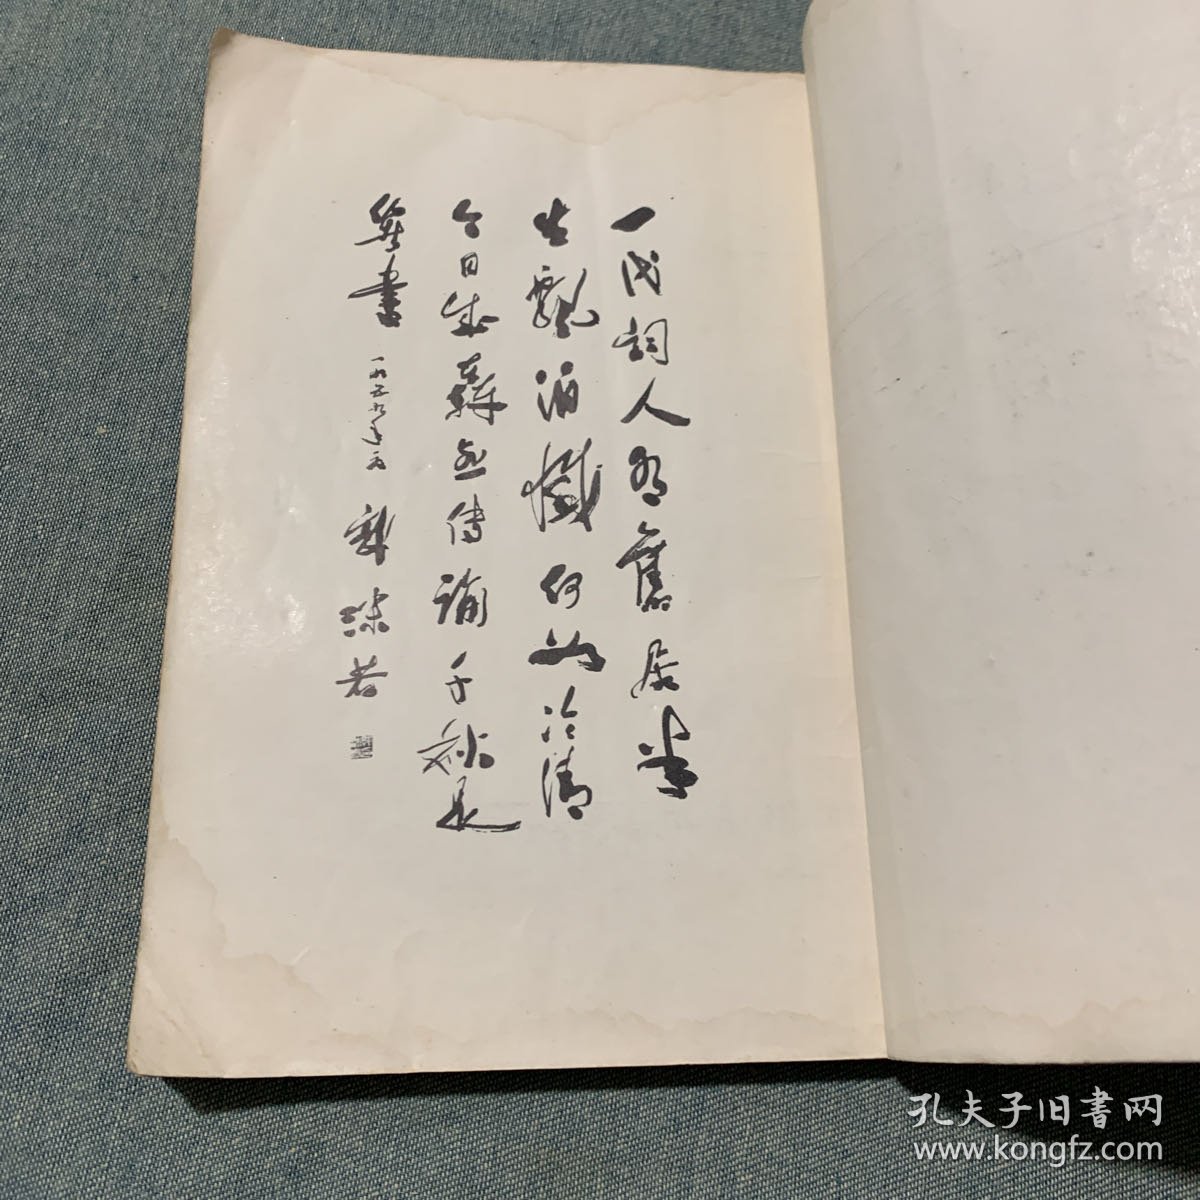 一代詞人有舊居半
生飄泊憾何如冷清
今日成轟烈傳誦千秋是
著書 一九五九年六月 郭沫若
孔夫子旧書网
www.kongfz.com